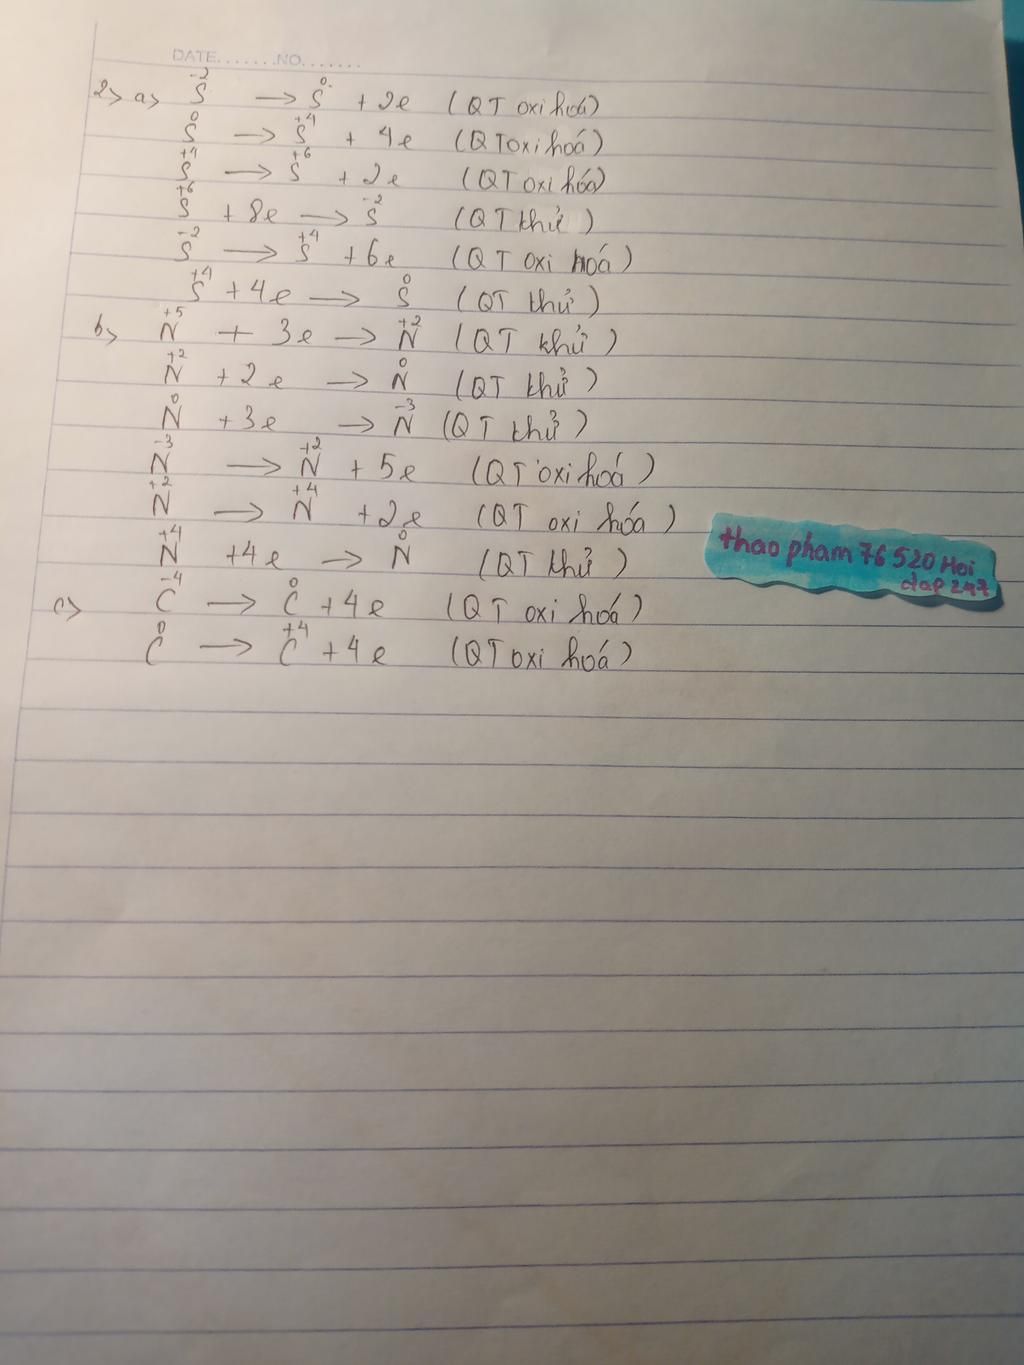 DATE.......NO.......
2> a> S⁻² → S⁰ + 2e (QT oxi hoá)
S⁰ → S⁺⁴ + 4e (QT oxi hoá)
S⁺⁴ → S⁺⁶ + 2e (QT oxi hóa)
S⁺⁶ + 8e → S⁻² (QT khử)
S⁻² → S⁺⁴ + 6e (QT oxi hoá)
S⁺⁴ + 4e → S⁰ (QT khử)
b> N⁺⁵ + 3e → N⁺² (QT khử)
N⁺² + 2e → N⁰ (QT khử)
N⁰ + 3e → N⁻³ (QT khử)
N⁻³ → N⁺² + 5e (QT oxi hoá)
N⁺² → N⁺⁴ + 2e (QT oxi hóa)
N⁺⁴ + 4e → N⁰ (QT khử)
c> C⁻⁴ → C⁰ + 4e (QT oxi hoá)
C⁰ → C⁺⁴ + 4e (QT oxi hoá)
thao pham 76 520 Hoi
dap 247